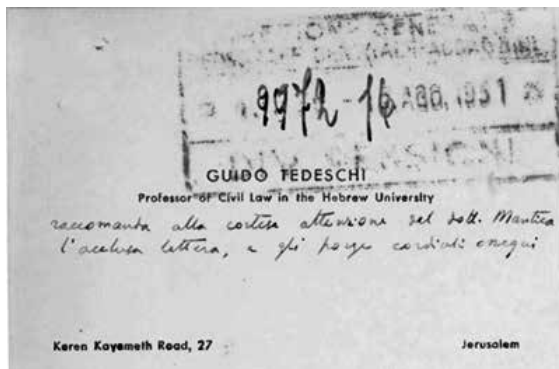 DIREZIONE GENERALE
9972-16 AGO. 1951
DIV. PENSIONI
GUIDO TEDESCHI
Professor of Civil Law in the Hebrew University
raccomanda alla cortese attenzione del dott. Mantica
l'acclusa lettera, e gli porge cordiali ossequi
Keren Kayemeth Road, 27
Jerusalem